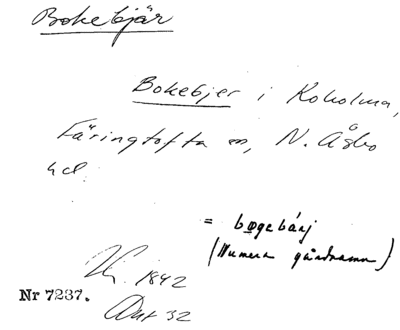 Bokebjär
Bokebjer i Koholma,
Färingtofta sn, N. Åsbo
hd.
= bøgebárj
(Numera gårdnamn)
1842
Nr 7237.
32